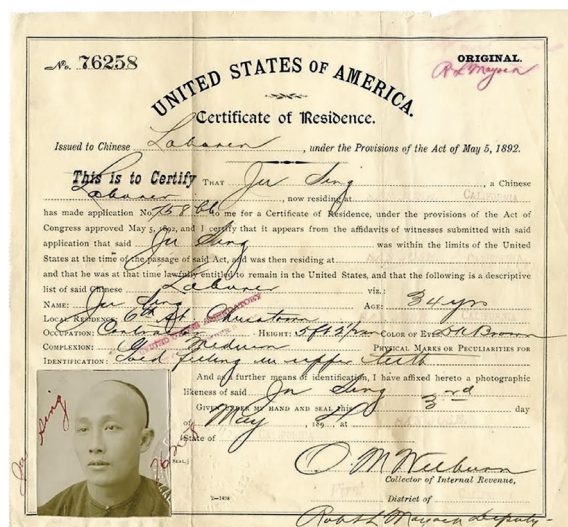 No. 76258
ORIGINAL.
UNITED STATES OF AMERICA.
Certificate of Residence.
Issued to Chinese Laborer, under the Provisions of the Act of May 5, 1892.
This is to Certify THAT Ju Sing, a Chinese
Laborer, now residing at
has made application No. to me for a Certificate of Residence, under the provisions of the Act of
Congress approved May 5, 1892, and I certify that it appears from the affidavits of witnesses submitted with said
application that said Ju Sing was within the limits of the United
States at the time of the passage of said Act, and was then residing at
and that he was at that time lawfully entitled to remain in the United States, and that the following is a descriptive
list of said Chinese Laborer viz.:
NAME: Ju Sing AGE: 34 yrs
LOCAL RESIDENCE: 6th St.
OCCUPATION: HEIGHT: COLOR OF EYES: Dk Brown
COMPLEXION: Medium PHYSICAL MARKS OR PECULIARITIES FOR
IDENTIFICATION: Gold filling in upper teeth
And as a further means of identification, I have affixed hereto a photographic
likeness of said Ju Sing
GIVEN UNDER MY HAND AND SEAL this 3rd day
of May, 189
State of
[SEAL.]
O M Welburn
Collector of Internal Revenue,
District of
Ju Sing